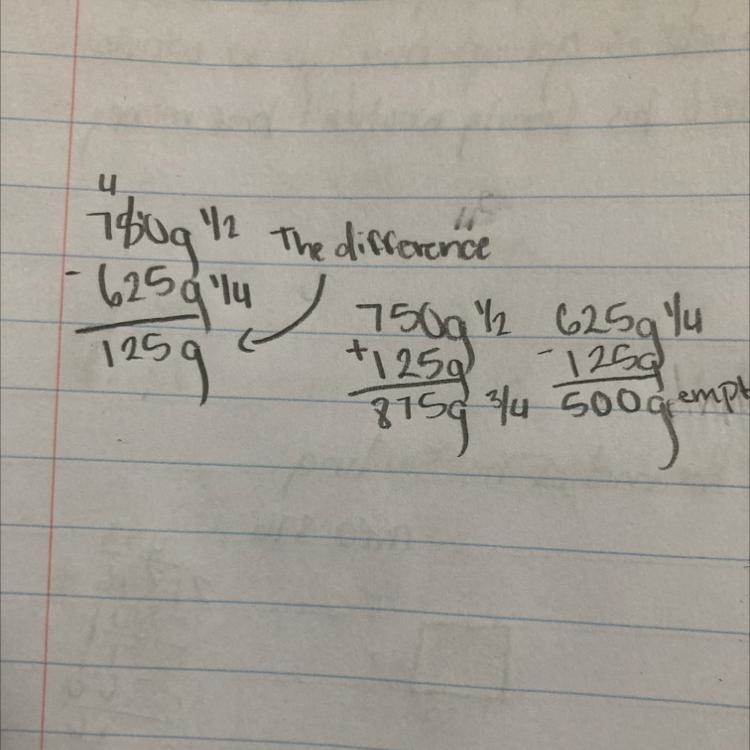 4
750g 1/2
- 625g 1/4
125g
The difference
750g 1/2
+125g
875g 3/4
625g 1/4
- 125g
500g empt